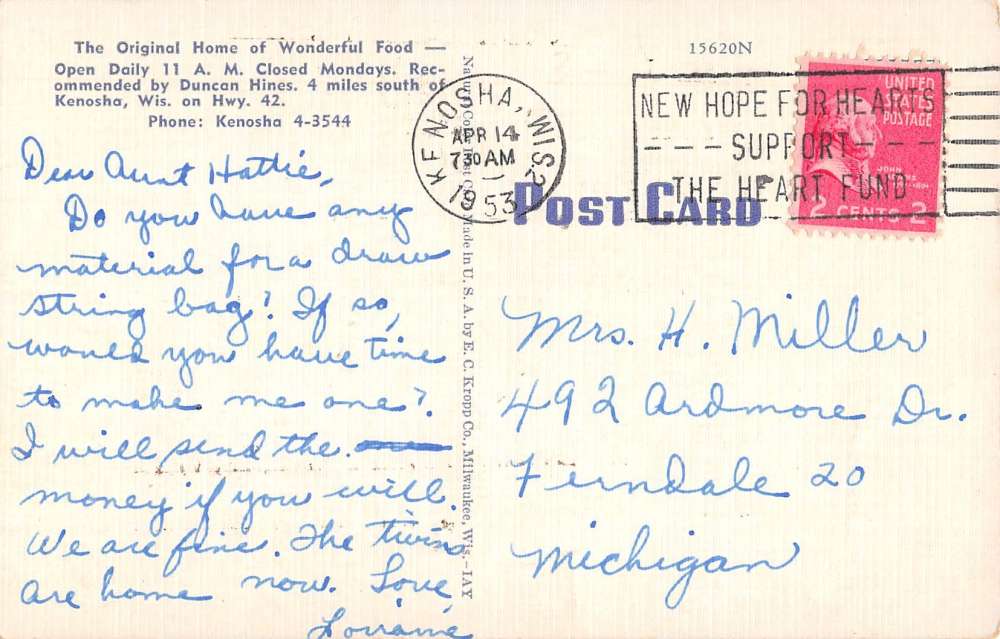 The Original Home of Wonderful Food —
Open Daily 11 A. M. Closed Mondays. Rec-
ommended by Duncan Hines. 4 miles south of
Kenosha, Wis. on Hwy. 42.
Phone: Kenosha 4-3544
Dear Aunt Hattie,
Do you have any
material for a draw
string bag? If so,
would you have time
to make me one?
I will send the
money if you will.
We are fine. The twins
are home now. Love,
Lorraine
Natural Color Post Card Made in U. S. A. by E. C. Kropp Co., Milwaukee, Wis.—IAY
15620N
KENOSHA, WIS. 2
APR 14
7 30 AM
1953
NEW HOPE FOR HEARTS
--- SUPPORT ---
THE HEART FUND
UNITED
STATES
POSTAGE
JOHN
2 CENTS 2
POST CARD
Mrs. H. Miller
492 Ardmore Dr.
Ferndale 20
Michigan